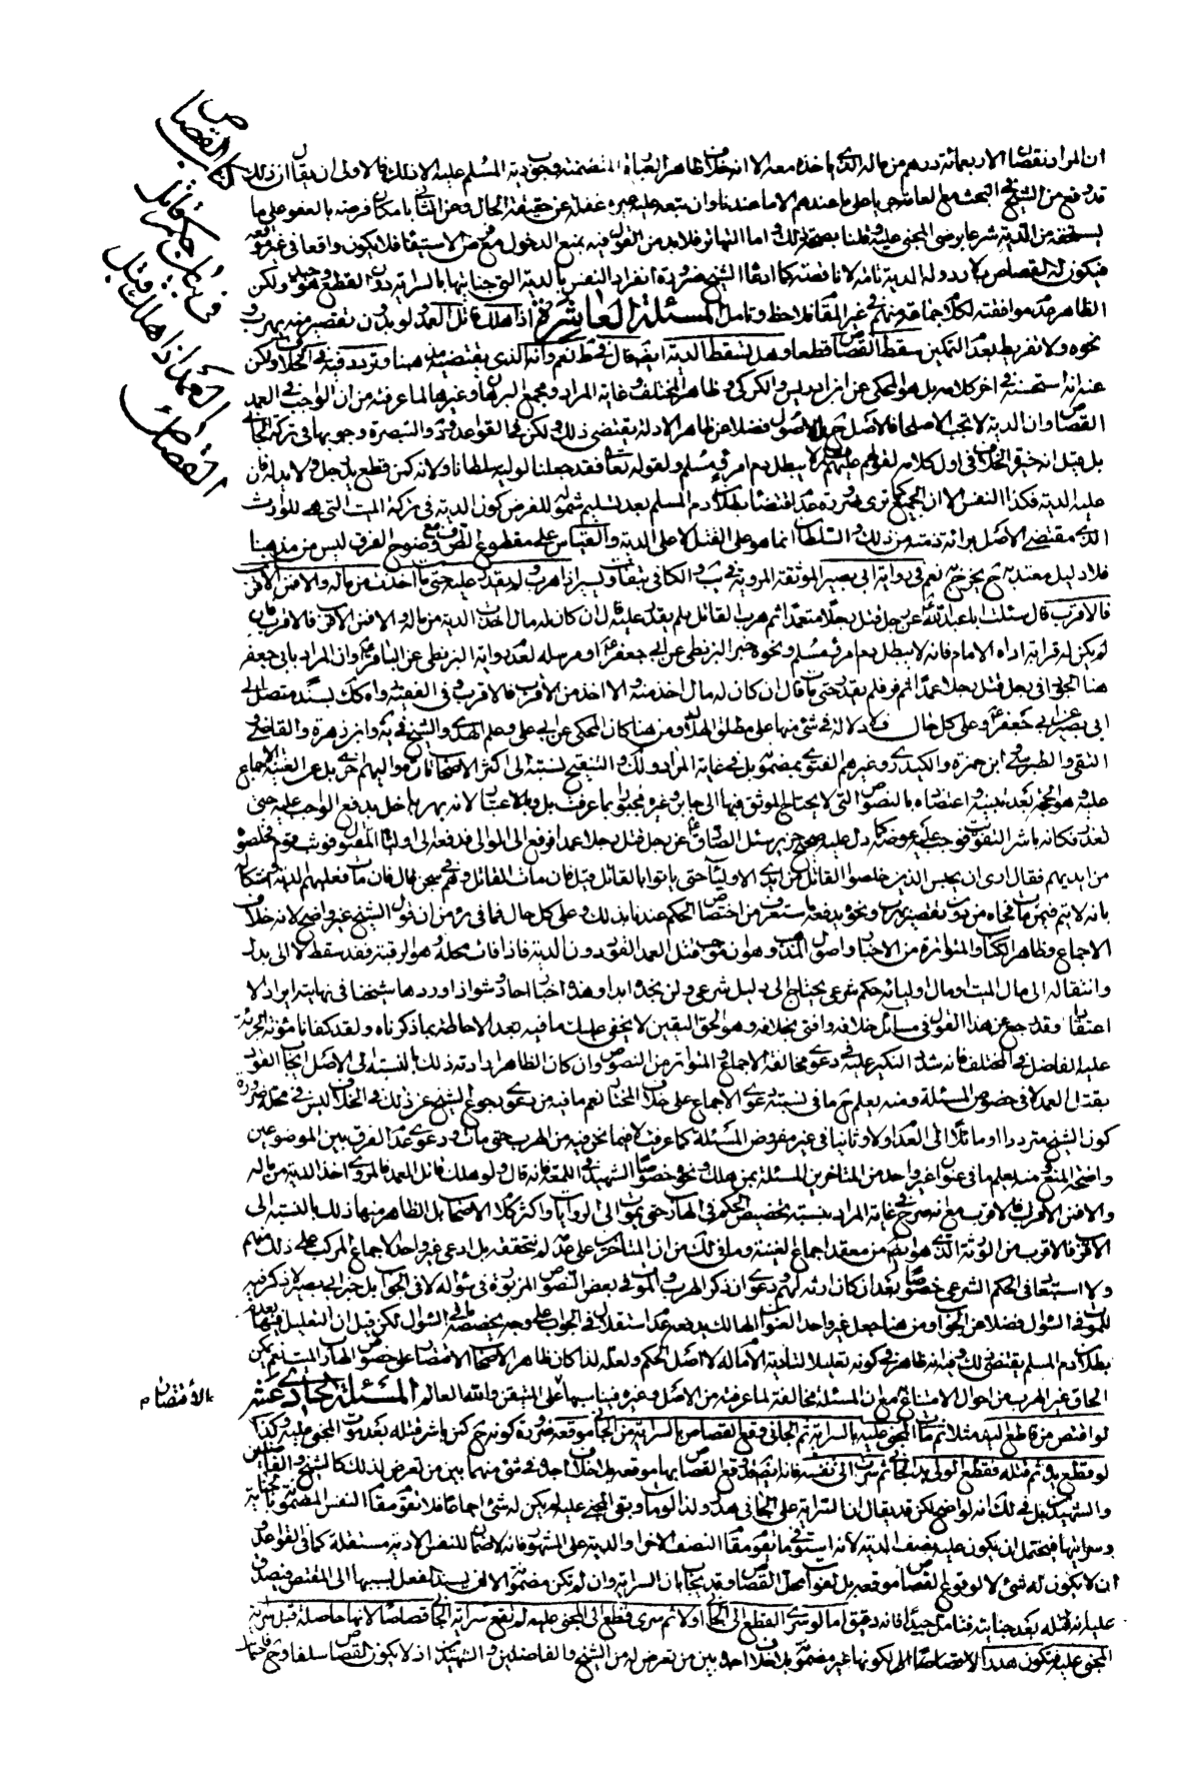 كتاب القصاص
في بيان حكم قاتل
العمد اذا هلك قبل
القصاص
ان المراد نقصان الاربعمائة درهم من ماله الذي ياخذه معه الا انه خلاف ظاهر العبارة المتضمنة وجوب دية المسلم عليه الا ذلك فالاولى ان يقال ان ذلك
قد وقع من الشيخ في البحث مع العامة جريا على ما عندهم لا ما عندنا وان تبعه عليه غيره غفلة عن حقيقة الحال وعن الثاني بامكان فرضه بالعفو على ما
يستحقه من الدية شرعا برضى المجني عليه وقلنا بصحة ذلك واما النهائر فلابد من القول فيه بمنع الدخول مع فرض الاستيفاء فلا يكون واقعا في غير موقعه
فيكون له القصاص بلا رد وله الدية تامة لا ناقصة كما ادعاه الشيخ ضرورة انفراد النفس بالدية التي جنايتها بالسراية دون القطع وحينئذ ولكن
الظاهر عدم موافقته لكلام جماعة ومنهم في غير المقام فلاحظ وتامل المسئلة العاشرة اذا هلك قاتل العمد لو بدون تقصير منه بهرب و
نحوه ولا تفريط بعد التمكين سقط القصاص قطعا وهل تسقط الدية ايضا قال في ط نعم وانه الذي يقتضيه مذهبنا وتردد فيه في الخلاف ولكن
عنه انه استحسنه في اخر كلامه بل هو المحكي عن ابن ادريس والكركي وظاهر المختلف وغاية المراد ومجمع البرهان وغيرها لما عرفته من ان الواجب في العمد
القصاص وان الدية لا تجب الا صلحا فالاصل بل الاصول فضلا عن ظاهر الادلة يقتضي ذلك ولكن في القواعد والتبصرة وجوبها في تركة الجاني
بل قيل انه خيرة الخلاف في اول كلامه لقولهم عليهم السلام لا يبطل دم امرئ مسلم ولقوله تعالى فقد جعلنا لوليه سلطانا ولانه كمن قطع يد رجل ولا يد له فان
عليه الدية فكذا النفس الا ان الجميع كما ترى ضرورة عدم اقتضاء بطلان دم المسلم بعد تسليم شموله للفرض كون الدية في تركة الميت التي هي للوارث
الذي مقتضى الاصل برائة ذمته من ذلك والسلطان انما هو على القتل لا على الدية والقياس على مقطوع الطرف مع وضوح الفرق ليس من مذهبنا
فلا دليل معتد به ح يخرج به نعم في رواية ابي بصير الموثقة المروية في يب والكافي بتفاوت يسير اذا هرب ولم يقدر عليه حتى مات اخذت من ماله والا فمن الاقرب
فالاقرب قال سئلت ابا عبد الله عن رجل قتل رجلا متعمدا ثم هرب القاتل فلم يقدر عليه قال ان كان له مال اخذت الدية من ماله والا فمن الاقرب فالاقرب فان
لم يكن له قرابة اداه الامام فانه لا يبطل دم امرئ مسلم ونحوه خبر البزنطي عن ابي جعفر او مرسله لعدم رواية البزنطي عن الباقر وان المراد بابي جعفر
هنا الجواد في رجل قتل رجلا عمدا ثم فر فلم يقدر عليه حتى مات قال ان كان له مال اخذ منه والا اخذ من الاقرب فالاقرب وفي الفقيه رواه كك بسند متصل الى
ابي بصير عن ابي جعفر وعلى كل حال فلا دلالة في شئ منها على مطلق الهلاك ومن هنا كان المحكي عن ابي علي وعلم الهدى والشيخ في ية وابن زهرة والقاضي
التقي والطبرسي وابن حمزة والكيدري وغيرهم الفتوى بمضمونه بل في غاية المراد ولك والتنقيح نسبته الى اكثر الاصحاب بل عن الغنية الاجماع
عليه وهو الحجة بعد تبينه واعتضاده بالنصوص التي لا يحتاج الموثق فيها الى جابر وغيره مجبور بما عرفت بل والاعتبار لانه بهربه اخل بدفع الواجب عليه حتى
تعذر فكانه باشر التفويت فوجب عليه عوضه كما دل عليه صحيح حريز سئل الصادق عن رجل قتل رجلا عمدا فرفع الى الوالي فدفعه الى اولياء المقتول فوثب قوم فخلصوا
من ايديهم فقال ارى ان يحبس الذين خلصوا القاتل من ايدي الاولياء حتى ياتوا بالقاتل قيل فان مات القاتل وهم في سجن قال فان مات فعليهم الدية واشكال
بانه لا يتم فيمن مات فجاه من دون تقصير بهرب ونحوه يدفعه ما ستعرف من اختصاص الحكم عندنا بذلك وعلى كل حال فما في مر من ان قول الشيخ غير واضح لانه خلاف
الاجماع وظاهر الكتاب والمتواترة من الاخبار واصول المذهب وهو ان موجب قتل العمد القود دون الدية فاذا فات محله وهو الرقبة فقد سقط لا الى بدل
وانتقاله الى مال الميت ومال اوليائه حكم شرعي يحتاج الى دليل شرعي ولن يجده ابدا وهذه اخبار احاد شواذ اوردها شيخنا في نهايته ايرادا لا
اعتقادا وقد رجع عن هذا القول في مسائل خلافه وافتى بخلافه وهو الحق اليقين لا يخفى عليك ما فيه بعد الاحاطة بما ذكرناه ولقد كفانا مؤنة الجرئة
عليه الفاضل في المختلف فانه شدد النكير عليه في دعوى مخالفة الاجماع والمتواتر من النصوص وان كان الظاهر ارادته ذلك بالنسبة الى الاصل ايجاب القود
بقتل العمد لا في خصوص المسئلة ومنه يعلم ح ما في نسبته دعوى الاجماع على خلاف المختار نعم ما فيه من دعوى رجوع الشيخ عن ذلك في الخلاف ليس في محله ضرورة
كون الشيخ مترددا او مائلا الى العدم اولا وثانيا في غير مفروض المسئلة كما عرفت لا فيما نحن فيه من الهرب حتى مات ودعوى عدم الفرق بين الموضوعين
واضحة المنع ومنه يعلم ما في عنوان غير واحد من المتاخرين المسئلة بمن هلك ونحوه خصوصا الشهيد في اللمعة فانه قال ولو هلك قاتل العمد فالمروي اخذ الدية من ماله
والا فمن الاقرب فالاقرب مع انه صرح في غاية المراد بنسبته تخصيص الحكم في الهارب حتى يموت الى الروايات واكثر كلام الاصحاب بل الظاهر منها ذلك بالنسبة الى
الاقرب فالاقرب من الورثة الذي هو ايضا من معقد اجماع الغنية وما في لك من ان المتاخرين على عدمه لم نتحققه بل ادعى غير واحد الاجماع المركب على ذلك منهم
ولا استبعاد في الحكم الشرعي خصوصا بعد ان كان ارثه لهم ودعوى ان ذكر الهرب والموت في بعض النصوص المزبورة في سؤاله لا في الجواب بل خبر ابي بصير لا ذكر فيه
للموت في السؤال فضلا عن الجواب ومن هنا جعل غير واحد العنوان الهالك يدفعه عدم استقلال في الجواب على وجه يخصصه ما في السؤال لكن قيل ان التعليل فيها بعدم
بطلان دم المسلم يقتضي ذلك وفيه انه ظاهر في كونه تعليلا لتادية الامام له لا اصل الحكم ولعله لذا كان ظاهر الاصحاب الاقتصار على خصوص الهارب الميت نعم يمكن
الحاق غير الهرب من احوال الامتناع مع ان المسئلة مخالفة لما عرفته من الاصل وغيره فيناسبها على المتيقن والله العالم المسئلة الحادي عشر
الاقتصار م
لو اقتص من قاطع اليد مثلا ثم مات المجني عليه بالسراية ثم الجاني وقع القصاص بالسراية من الجاني موقعه ضرورة كونه ح كمن باشر قتله بعد موت المجني عليه وكذا
لو قطع يده ثم قتله فقطع الولي يد الجاني ثم سرت الى نفسه فانه ايضا وقع القصاص بها موقعه بلا خلاف اجده في شئ منهما بين من تعرض لذلك كالشيخ والفاضلين
والشهيدين بل في لك انه لو اضح لكن قد يقال ان السراية على الجاني هدر ولذا لو مات وبقي المجني عليه لم يكن له شئ اجماعا فلا تقوم مقام النفس المضمونة بجناية
وسرايتها فيحتمل ان يكون عليه نصف الدية لانه استوفى ما يقوم مقام النصف الاخر او الدية على المشهور فانه لا ضمان للنفس الا دية مستقلة كما في القواعد و
ان لا يكون له شئ لا لوقوع القصاص موقعه بل لفوات محل القصاص وقد يجاب بان السراية وان لم تكن مضمونة الا انه يسند الفعل بسببها الى المقتص فيصدق
عليه انه قتله بعد جنايته فتامل جيدا فانه دقيق اما لو سرى القطع الى الجاني اولا ثم سرى قطع الى المجني عليه لم تقع سراية الجاني قصاصا لانها حاصلة قبل سراية
المجني عليه فتكون هدرا لا قصاصا لا لكونها غير مضمونة بلا خلاف اجده بين من تعرض له من الشيخ والفاضلين والشهيدين اذ لا يكون القصاص سلفا وح فاحتمال